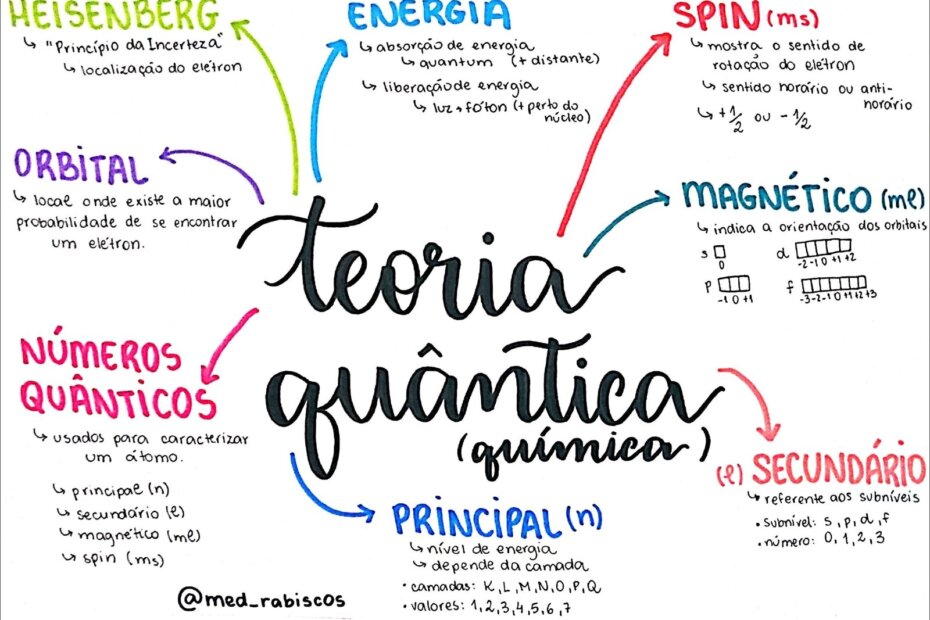 HEISENBERG
↳ "Princípio da Incerteza"
↳ localização do elétron
ENERGIA
↳ absorção de energia
↳ quantum (+ distante)
↳ liberação de energia
↳ luz → fóton (+ perto do
núcleo)
SPIN (ms)
↳ mostra o sentido de
rotação do elétron
↳ sentido horário ou anti-
horário
↳ +1/2 ou -1/2
ORBITAL
↳ local onde existe a maior
probabilidade de se encontrar
um elétron.
MAGNÉTICO (ml)
↳ indica a orientação dos orbitais
s
0
d
-2 -1 0 +1 +2
p
-1 0 +1
f
-3 -2 -1 0 +1 +2 +3
teoria
quântica
(química)
NÚMEROS
QUÂNTICOS
↳ usados para caracterizar
um átomo.
↳ principal (n)
↳ secundário (l)
↳ magnético (ml)
↳ spin (ms)
(l) SECUNDÁRIO
↳ referente aos subníveis
• subnível: s, p, d, f
• número: 0, 1, 2, 3
PRINCIPAL (n)
↳ nível de energia
↳ depende da camada
• camadas: K, L, M, N, O, P, Q
• valores: 1, 2, 3, 4, 5, 6, 7
@med_rabiscos